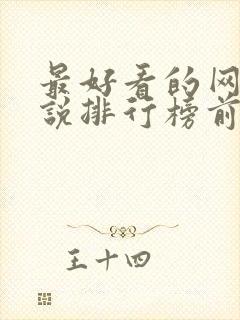 最好看的网
说排行榜前
王十四